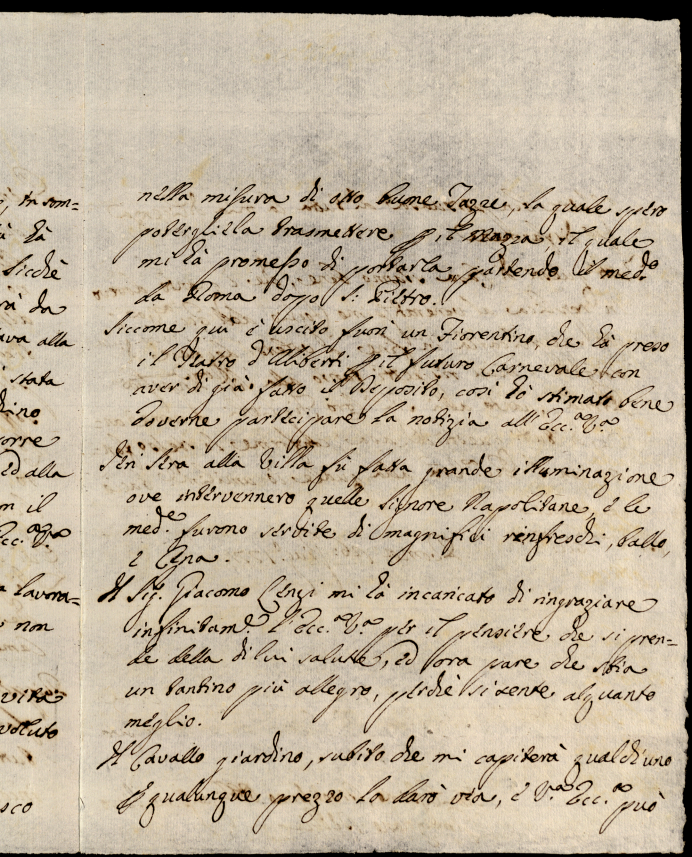 nella misura di otto buone Tazze, la quale spero
potergliela trasmettere p. il Mazza il quale
mi hà promesso di portarla partendo il med.º
da Roma dopo S: Pietro.
Siccome qui è uscito fuori un Fiorentino, che hà preso
il Teatro d'Aliberti p. il futuro Carnevale con
aver di già fatto il Deposito, così hò stimato bene
doverne partecipare la notizia all'Ecc.ª V.ª
Ieri sera alla Villa fù fatta grande illuminazione
ove intervennero quelle Signore Napolitane, e le
med.e furono servite di magnifici rinfreschi, ballo,
e Cena.
Il Sig. Giacomo Cenci mi hà incaricato di ringraziare
infinitam.e l'Ecc.ª V.ª per il pensiere che si pren-
de della di lui salute, ed ora pare che stia
un tantino più allegro, perchè si sente alquanto
meglio.
Il Cavallo giardino, subito che mi capiterà qualch'uno
p. qualunque prezzo lo darò via, e V.ª Ecc.ª può
in som=
hà
Sicchè
da
alla
stata
ed alla
il
Ecc.ª V.ª
lavora=
non
vita
voluto